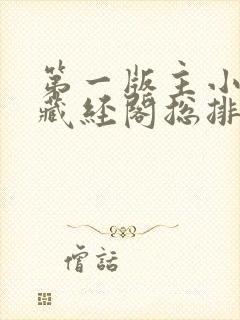 第一版主小
藏经阁总排
僧話